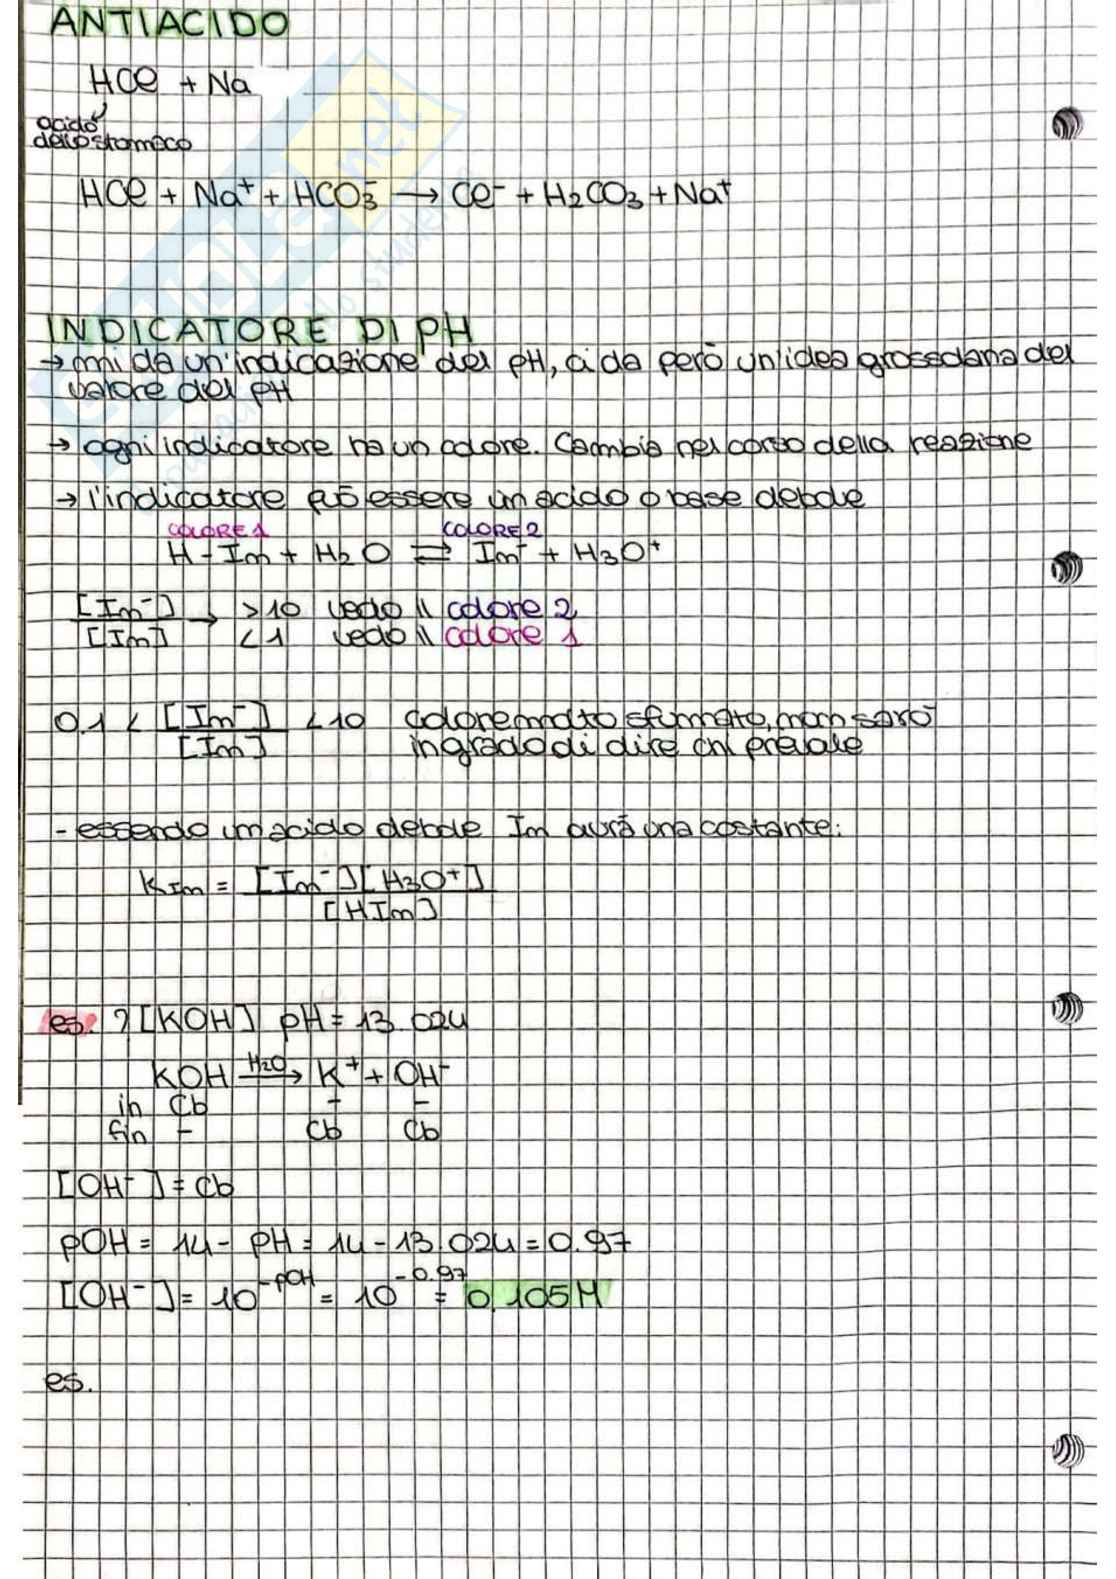 ANTIACIDO
HCl + Na
acido
dello stomaco
HCl + Na⁺ + HCO₃⁻ → Cl⁻ + H₂CO₃ + Na⁺
INDICATORE DI PH
→ mi da un'indicazione del pH, ci da però un'idea grossolana del
valore del pH
→ ogni indicatore ha un colore. Cambia nel corso della reazione
→ l'indicatore può essere un acido o base debole
COLORE 1 COLORE 2
H-Im + H₂O ⇌ Im⁻ + H₃O⁺
[Im⁻] → >10 vedo il colore 2
[Im] <1 vedo il colore 1
0.1 < [Im⁻] <10 colore molto sfumato, non sarò
[Im] in grado di dire chi prevale
- essendo un acido debole Im avrà una costante:
KIm = [Im⁻][H₃O⁺]
[HIm]
es. ? [KOH] pH = 13.024
KOH H₂O→ K⁺ + OH⁻
in Cb - -
fin - Cb Cb
[OH⁻] = Cb
pOH = 14 - pH = 14 - 13.024 = 0.97
[OH⁻] = 10^-pOH = 10^-0.97 = 0,105M
es.